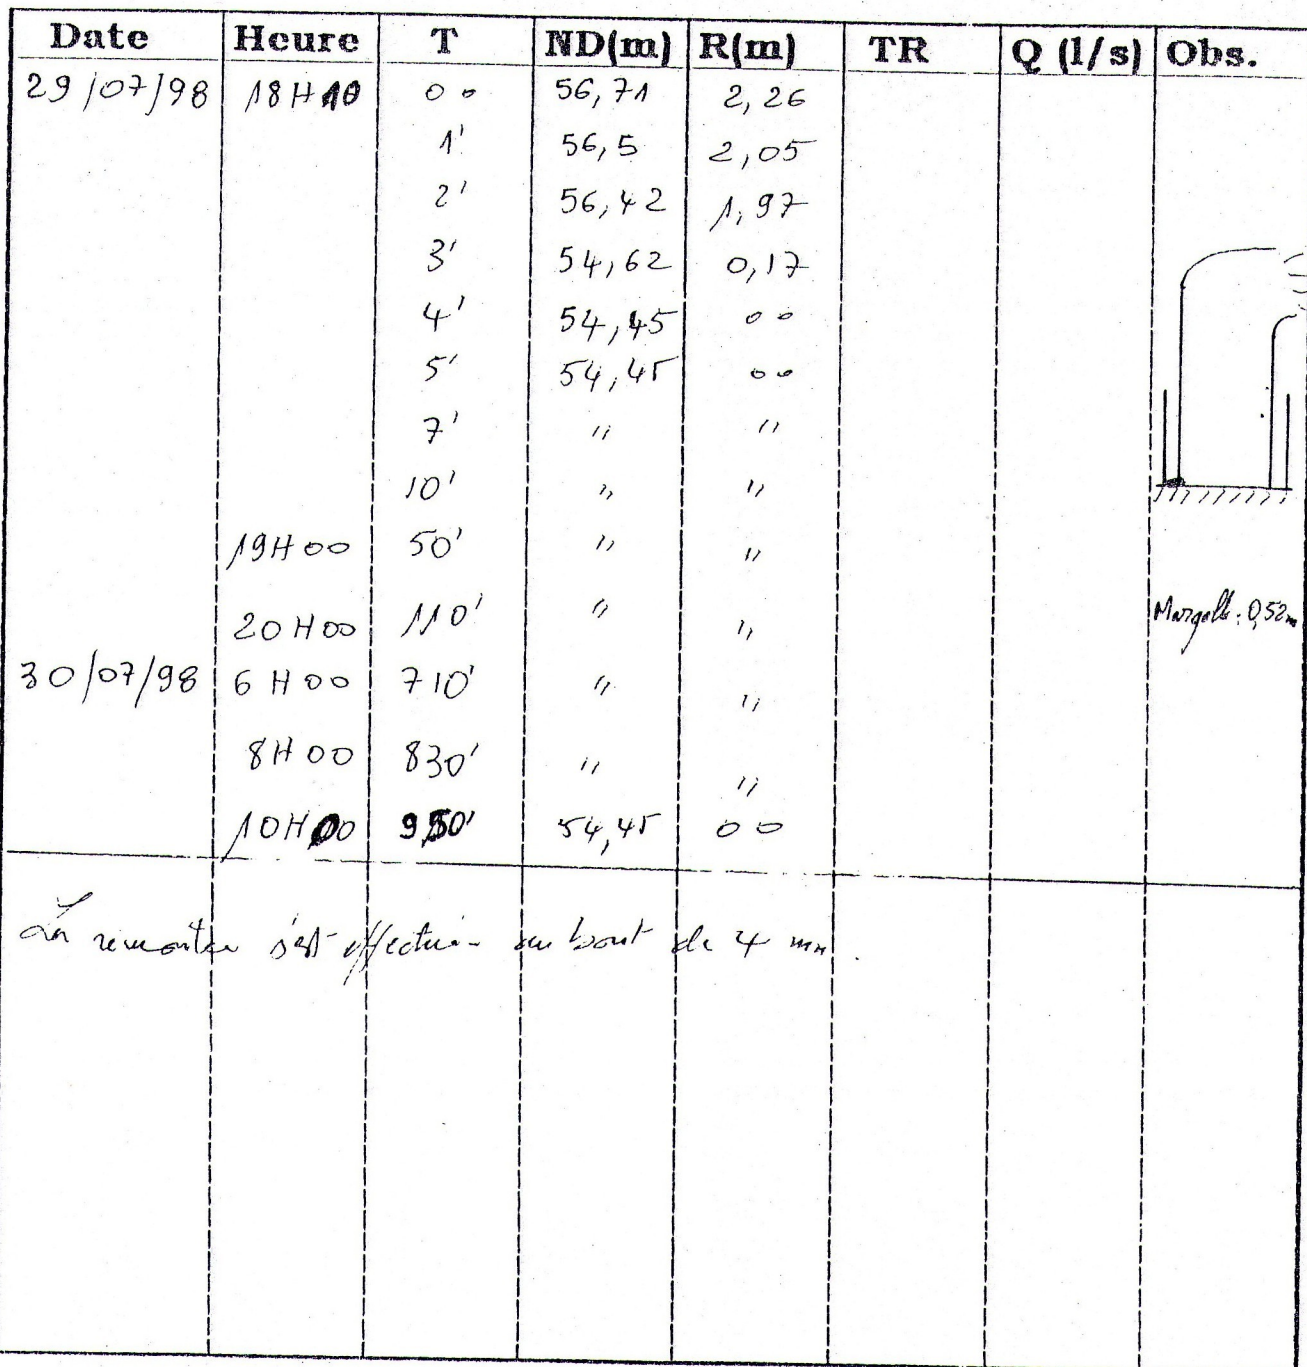 Date Heure T ND(m) R(m) TR Q (l/s) Obs.
29/07/98 18H10 00 56,71 2,26
1' 56,5 2,05
2' 56,42 1,97
3' 54,62 0,17
4' 54,45 00
5' 54,45 00
7' " "
10' " "
19H00 50' " "
20H00 110' " "
Margelle : 0,52m
30/07/98 6H00 710' " "
8H00 830' " "
10H00 950' 54,45 00
La remontée s'est effectuée au bout de 4 mn.